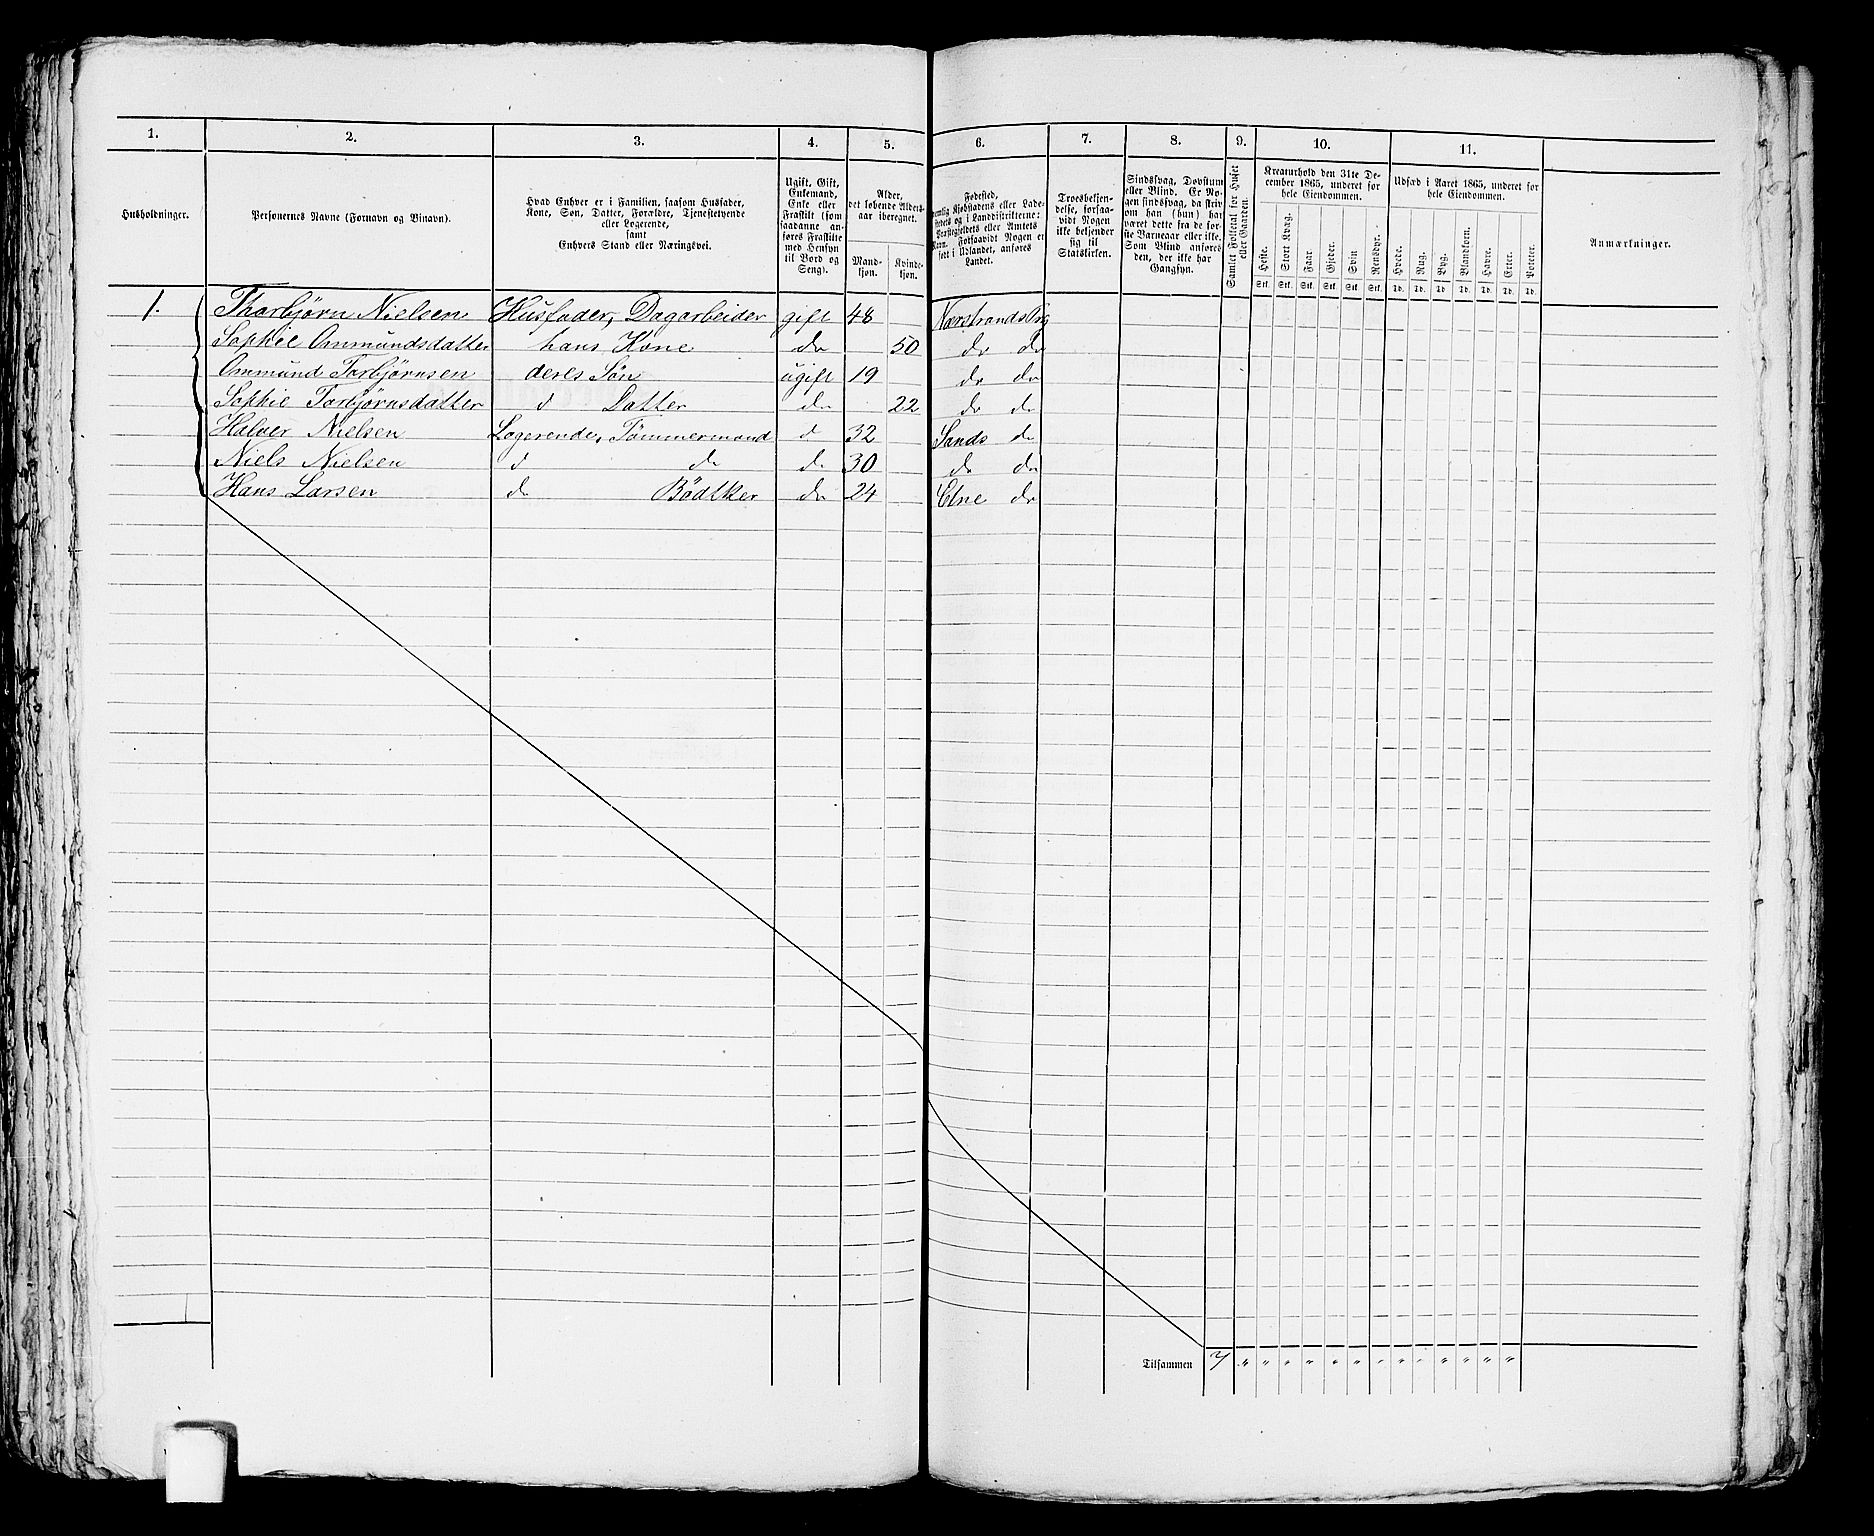 1. 2. 3. 4. 5. 6. 7. 8. 9. 10. 11.
Husholdninger.
Personernes Navne (Fornavn og Binavn).
Hvad Enhver er i Familien, saasom Husfader,
Kone, Søn, Datter, Forældre, Tjenestetyende
eller Logerende,
samt
Enhvers Stand eller Næringsvei.
Ugift, Gift,
Enkemand,
Enke eller
Fraskilt (som
saadanne an-
føres Fraskilte
med Hensyn
til Bord og
Seng).
Alder,
det løbende Alders-
aar iberegnet.
Mand-
kjøn.
Kvinde-
kjøn.
Fødested,
nemlig Kjøbstadens eller Lade-
stedets og i Landdistrikterne:
Præstegjeldets eller Amtets
Navn. Forsaavidt Nogen er
født i Udlandet, anføres
Landet.
Troesbekjen-
delse, forsaa-
vidt Nogen
ikke bekjender
sig til
Statskirken.
Sindssvag, Døvstum
eller Blind. Er No-
gen sindssvag, da skriv
om han (hun) har
været dette fra de før-
ste Barneaar eller ikke.
Som Blind anføres
den, der ikke har
Gangsyn.
Samlet Folketal for Huset
eller Gaarden.
Kreaturhold den 31te De-
cember 1865, underet for
hele Eiendommen.
Heste. Stort Kvæg. Faar Gjeder. Svin Rensdyr.
Stk. Stk. Stk. Stk. Stk. Stk.
Udsæd i Aaret 1865, underet for
hele Eiendommen.
Hvede. Rug. Byg. Blandkorn. Havre. Erter. Poteter.
Td. Td. Td. Td. Td. Td. Td.
Anmærkninger.
1. Thorbjørn Nielsen Husfader, Dagarbeider gift 48 Nærstrands Prg
Sophie Ommundsdatter hans Kone do 50 do do
Ommund Torbjørnsen deres Søn ugift 19 do do
Sophie Torbjørnsdatter d Datter do 22 do do
Halver Nielsen Logerende, Tømmermand d 32 Sands do
Niels Nielsen d do do 30 do do
Hans Larsen do Bødtker do 24 Etne do
Tilsammen 7 " " " " " " " " " " " " "